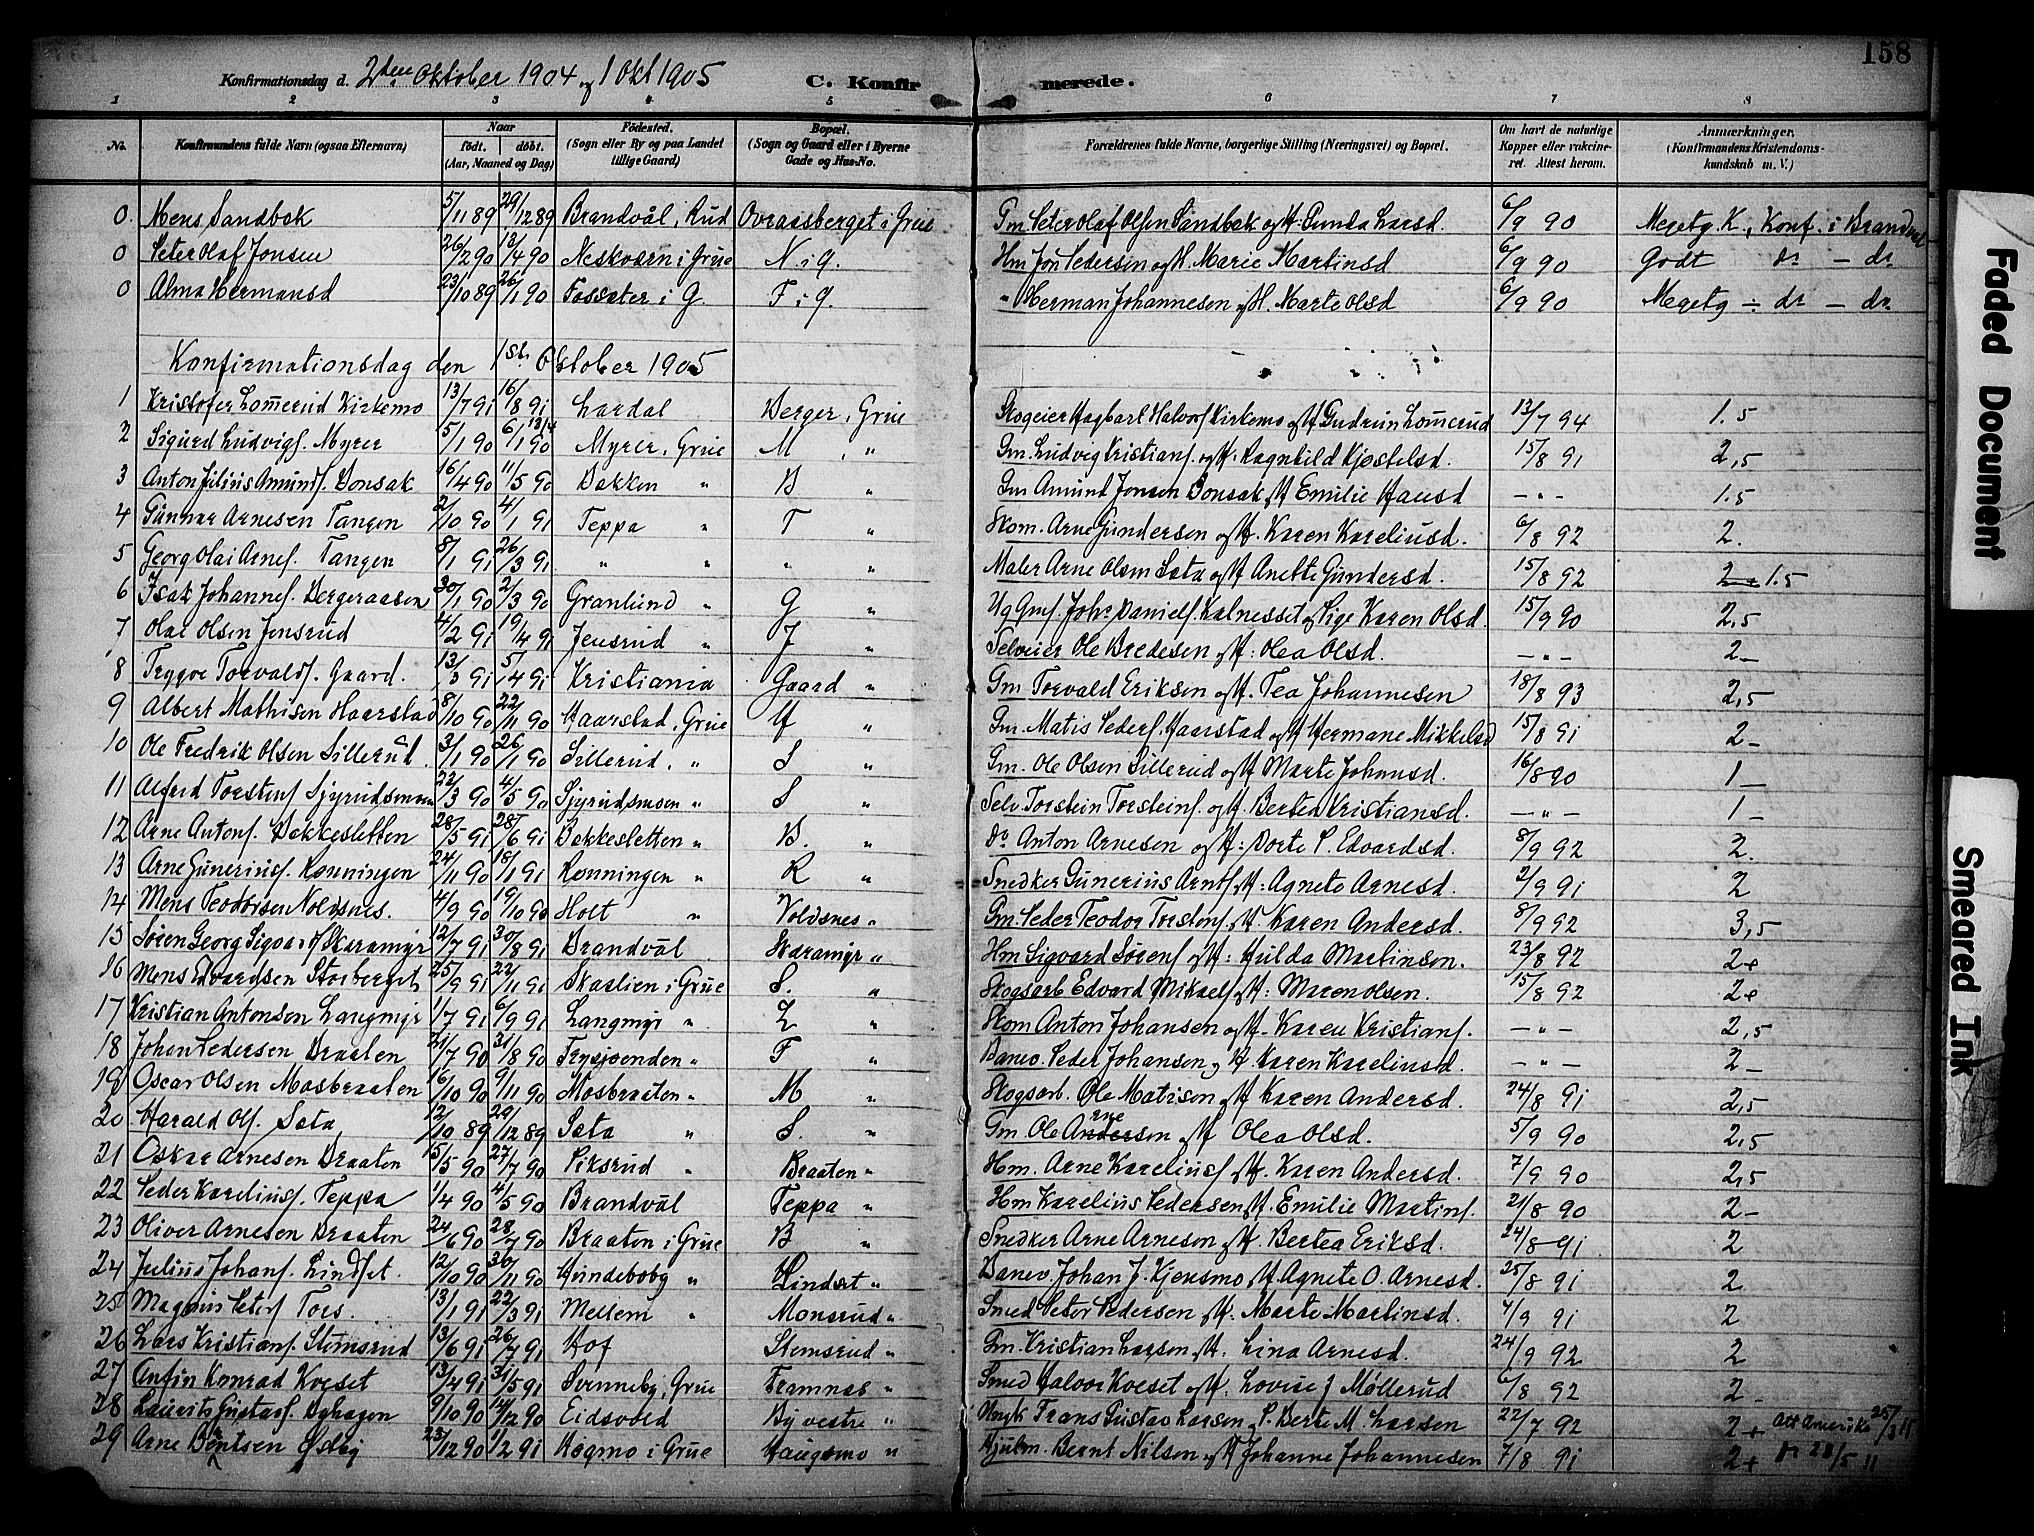 158
Konfirmationsdag d. 2den Oktober 1904 og 1 Okt 1905 C. Konfirmerede.
1 2 3 4 5 6 7 8
No. Konfirmandens fulde Navn (ogsaa Efternavn) Naar født. døbt. (Aar, Maaned og Dag) Fødested. (Sogn eller By og paa Landet tillige Gaard) Bopæl. (Sogn og Gaard eller i Byerne Gade og Hus-No. Forældrenes fulde Navne, borgerlige Stilling (Næringsvei) og Bopæl. Om havt de naturlige Kopper eller vaccineret. Attest herom. Anmærkninger. (Konfirmandens Kristendomskundskab m. V.)
0. Mens Sandbæk 5/11 89 29/12 89 Brandvål, Rud Ovraasberget i Grue Gm. Peter Olaf Olsen Sandbæk og H. Gunda Larsd. 6/9 90 Megetg. K, Konf. i Brandval
0 Peter Olaf Jonsen 26/2 90 13/4 90 Neskværn i Grue N. i G. Hm Jon Pedersen og H. Marie Martinsd 6/9 90 Godt do - do
0 Alma Hermansd 23/10 89 26/1 90 Fossæter i G F. i G. " Herman Johannesen og H. Marte Olsd 6/9 90 Megetg - do - do
Konfirmationsdag den 1ste Oktober 1905
1 Kristofer Lomerud Kirkemo 13/7 91 16/8 91 Lardal Berger, Grue Skogeier Hagbart Halvors Kirkemo og H Gudrun Lomerud 13/7 94 1.5
2 Sigurd Ludvigs. Myrer 5/1 90 6/1 90 13/4 Myrer, Grue M. " Gm. Ludvig Kristians. og H. Ragnhild Kjøstelsd. 15/8 91 2,5
3 Anton Julius Amunds. Bonsak 16/4 90 11/5 90 Bakken " B " Gm Amund Jonsen Bonsak og H Emilie Hansd - " - 1.5
4 Gunnar Arnesen Tangen 2/10 90 4/1 91 Teppa " T " Skom. Arne Gundersen og H. Karen Kareliusd. 6/8 92 2.
5 Georg Olai Arnes. Tangen 8/1 91 26/3 91 " " " " Maler Arne Olsen Sæta og H Anette Gundersd. 15/8 92 2 - 1.5
6 Isak Johannes. Bergeraasen 30/1 90 2/3 90 Granlund " G " Ug Gms. Johs Daniels. Kalnesset og Pige Karen Olsd. 15/9 90 2,5
7 Olai Olsen Jensrud 4/2 91 19/4 91 Jensrud " J " Selveier Ole Bredesen og H: Olea Olsd. - " - 2 -
8 Trygve Torvalds. Gaard. 13/3 91 5/4 91 Kristiania Gaard " Gm Torvald Eriksen og H. Tea Johannesen 18/8 93 2,5
9 Albert Mathisen Haarstad 8/10 90 22/11 90 Haarstad, Grue H " Gm. Matis Peders. Haarstad og H Hermane Mikkelsd 15/8 91 2 -
10 Ole Fredrik Olsen Sillerud. 3/1 90 26/1 90 Sillerud. " S " Gm. Ole Olsen Sillerud og H Marte Johansd. 16/8 90 1 -
11 Alfred Torstens Sjyrudsmoen 22/3 90 4/5 90 Sjyrudsmoen " S " Selv Torstein Torsteins. og H. Bertea Kristiansd. - " - 1 -
12 Arne Antons. Bakkesletten 28/5 91 28/6 91 Bakkesletten " B. " Do Anton Arnesen og H: Dorte P. Edvardsd. 8/9 92 2.
13 Arne Gunerius. Rønningen 24/11 90 18/1 91 Rønningen " R " Snedker Gunerius Arnts. og H. Agnete Arnesd. 2/9 91 2
14 Mens Teodorsen Voldsnes. 4/9 90 19/10 90 Holt " Voldsnes " Gm. Peder Teodor Torstens. og H Karen Andersd. 8/9 92 3,5
15 Søren Georg Sigvards Skaramyr 12/7 91 30/8 91 Brandvål Skaramyr " Hm Sigvard Sørens og H: Hulda Martinsen. 23/8 92 2+
16 Mens Edvardsen Storberget 25/9 91 22/11 91 Skaslien i Grue S. " Skogsarb Edvard Mikaels og H: Maren Olsen. 15/8 92 2+
17 Kristian Antonsen Langmyr 1/7 91 6/9 91 Langmyr " L " Skom Anton Johansen og H. Karen Kristians. - " - 2,5
18 Johan Pedersen Braaten 21/7 90 31/8 90 Frysjøenden " F " Banev. Peder Johansen og H Karen Kareliusd. - " - 2 -
19 Oscar Olsen Mosbraaten 16/10 90 9/11 90 Mosbraaten " M " Skogsarb. Ole Matisen og H. Karen Andersd. 24/8 91 2,5
20 Harald Ols. Sæta 12/10 89 29/12 89 Sæta " S. " Gm. Ole Andersen rne og H Olea Olsd. 5/9 90 2,5
21 Oskar Arnesen Braaten 15/5 90 27/7 90 Piksrud " Braaten " Hm. Arne Karelius. og H. Karen Andersd. 7/9 90 2,5
22 Peder Karelius. Teppa 1/4 90 4/5 90 Brandvål Teppa " Hm Karelius Pedersen og H. Emilie Martins. 21/8 90 2 -
23 Oliver Arnesen Braaten 24/6 90 28/7 90 Braaten i Grue B " Snedker Arne Arnesen og H. Bertea Eriksd. 24/8 91 2
24 Julius Johans. Lindset. 12/10 90 30/11 90 Hundeboby " Lindset " Banev. Johan J. Kjensmo og H. Agnete O. Arnesd. 25/8 91 2
25 Magnus Peters Tors. 13/1 91 22/3 91 Mellem " Monsrud " Smed Peter Pedersen og H. Marte Martinsd. 4/9 91 2
26 Lars Kristians. Stemsrud 13/6 91 26/7 91 Hof Stemsrud " Gm. Kristian Larsen og H. Lina Arnesd. 24/9 92 2
27 Anfin Konrad Kveset 13/4 91 31/5 91 Svenneby, Grue Framnes " Smed Halvor Kveset og H. Lovise J Møllerud 6/8 92 2
28 Laurits Gustavs. Byhagen 9/10 90 14/12 90 Eidsvold By vestre " Frans Gustav Larsen og P. Berte M. Larsen 22/7 92 2+ Att Amerika 25/3 11
29 Arne Berntsen Østby 23/12 90 1/2 91 Høgmo i Grue Haugsmo " Hjulm. Bernt Nilsen og H Johanne Johannesen 7/8 91 2+ do 28/5 11
Faded Document
Smeared Ink